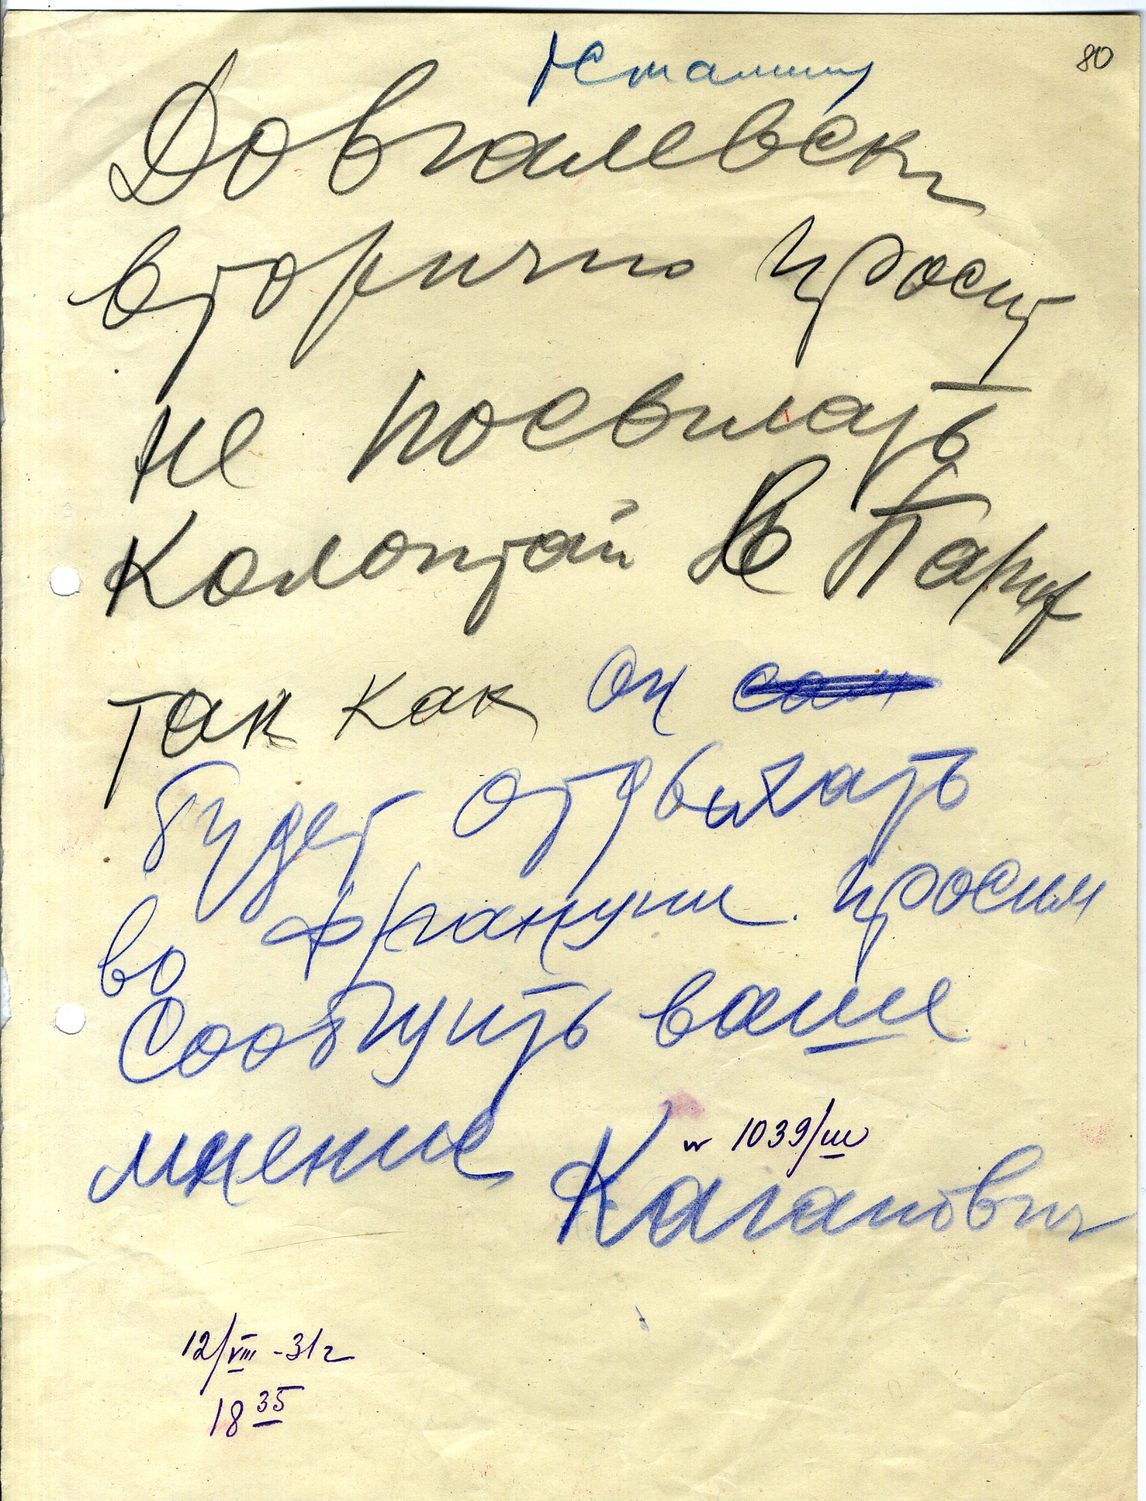 80
т Сталину
Довгалевск
вторично просит
не посылать
Колонтай в Париж
так как он сам
будет отдыхать
во Франции. просим
сообщить ваше
мнение
№ 1039/ш
Каганович
12/VIII - 31 г
18 35